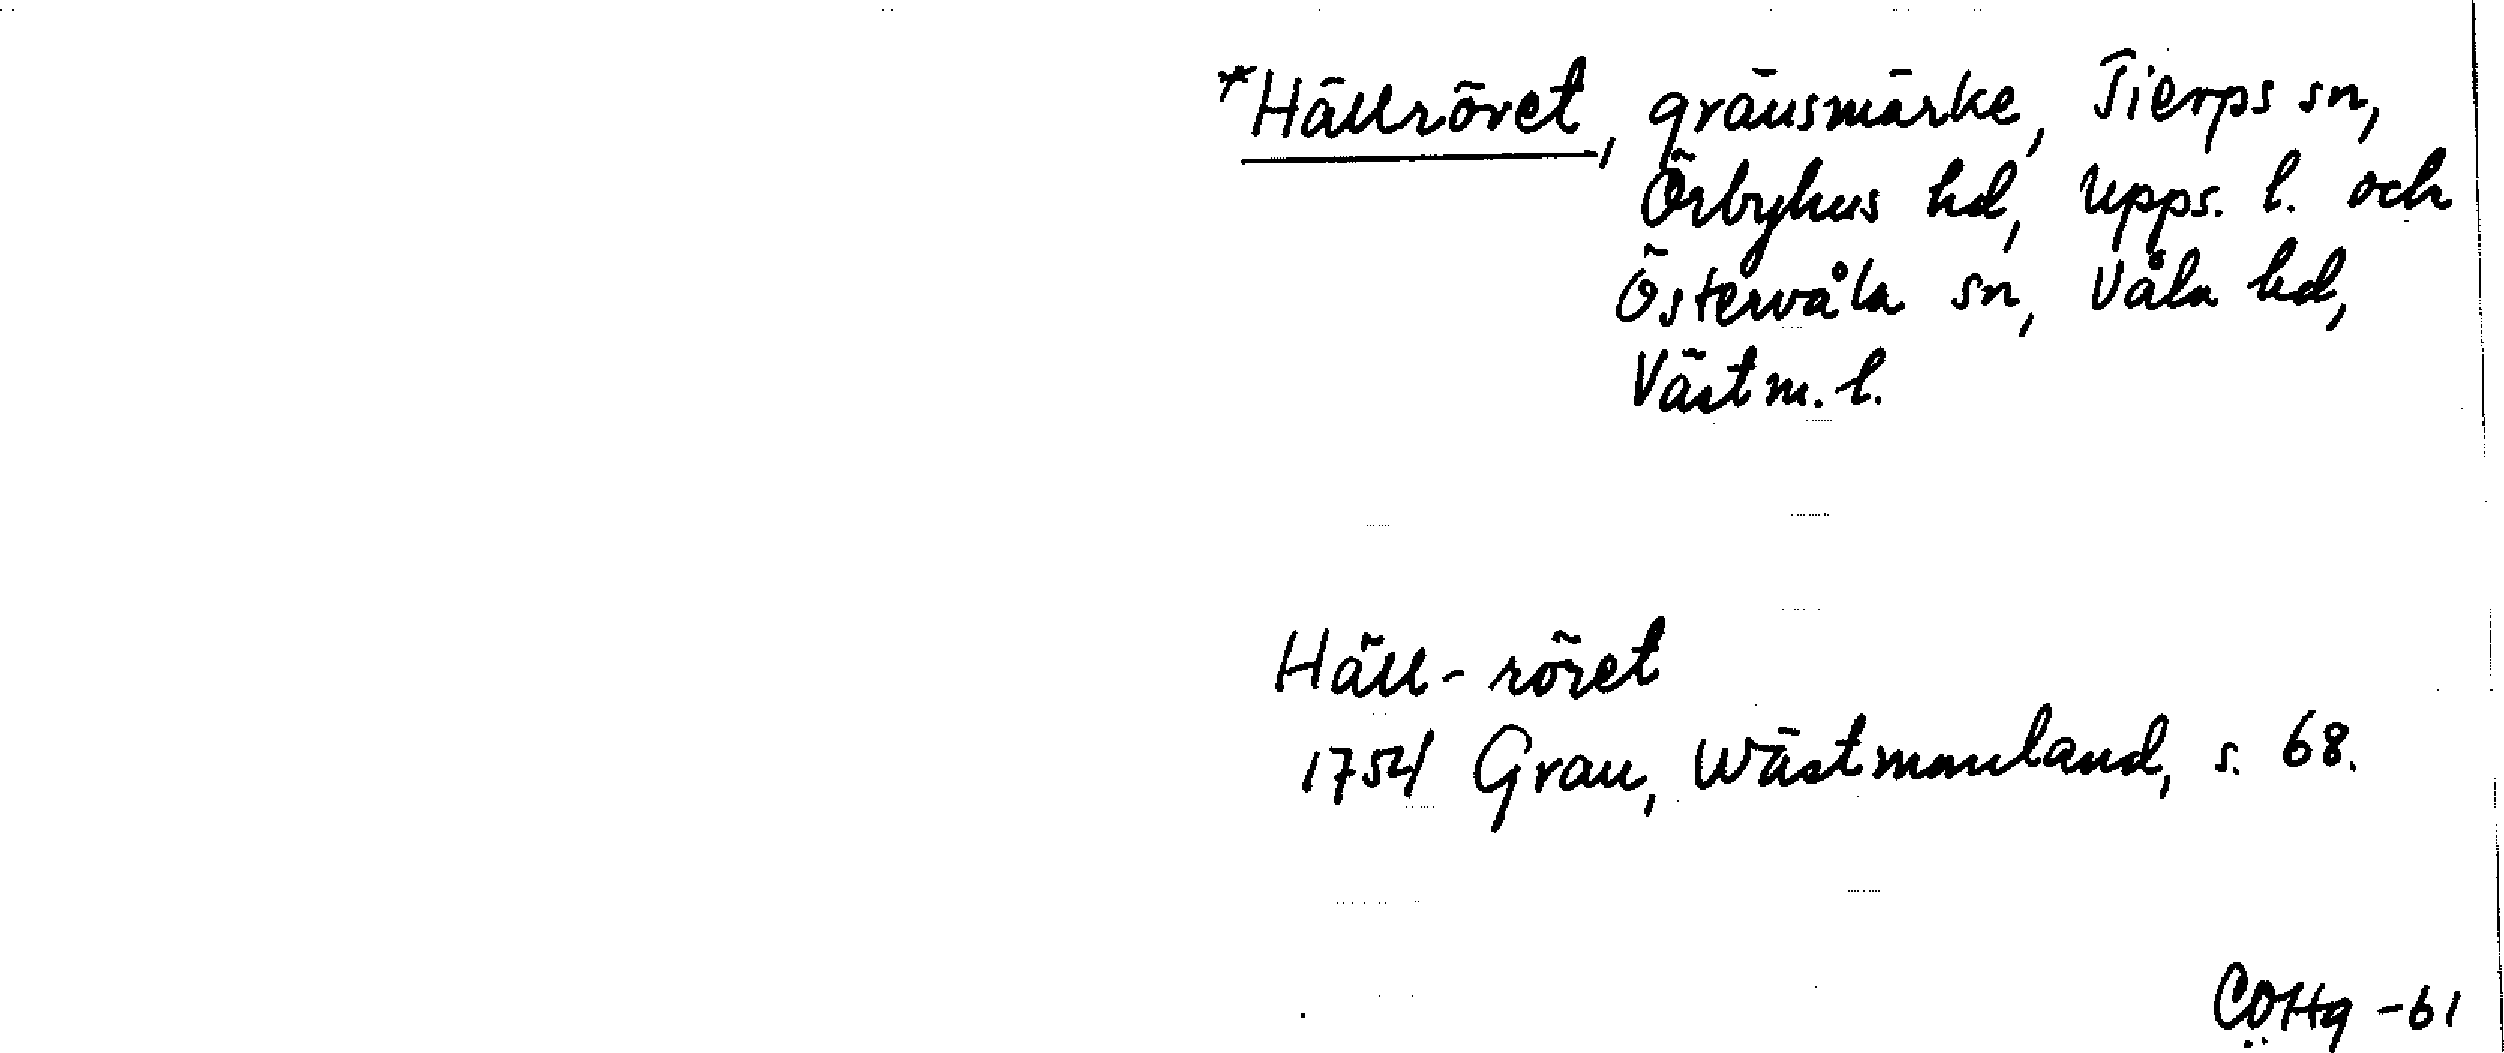 *Hällröret, gränsmärke, Tierps sn,
Örbyhus hd, Upps. l. och
Östervåla sn, Våla hd,
Västm. l.
Häll-röret
1754 Grau, Wästmanland, s. 68.
CÖHg -61